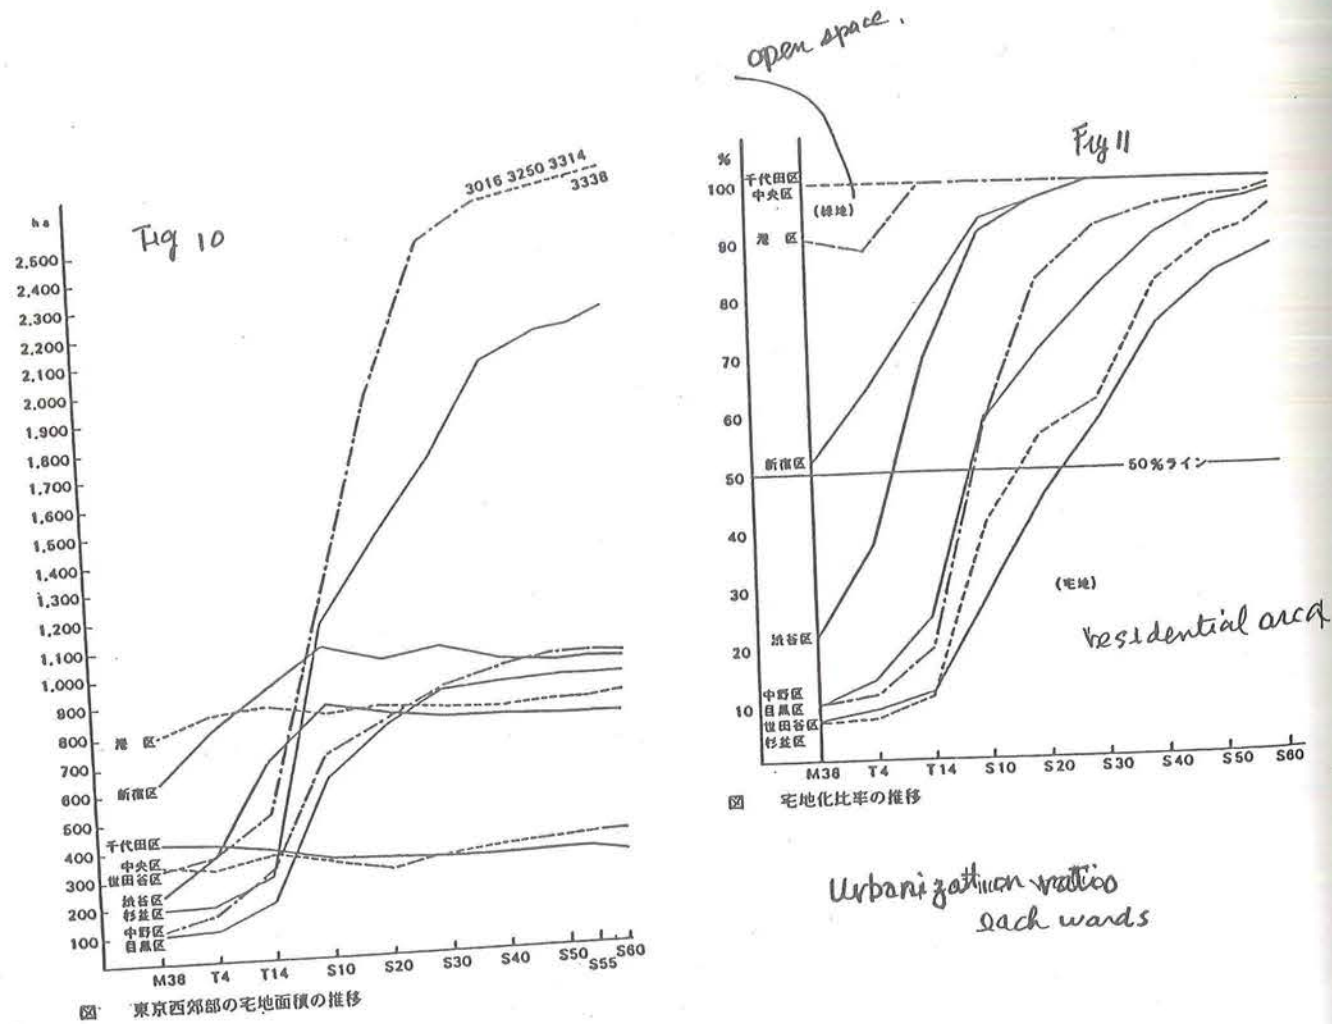 Fig 10
3016 3250 3314
3338
ha
2,500
2,400
2,300
2,200
2,100
2,000
1,900
1,800
1,700
1,600
1,500
1,400
1,300
1,200
1,100
1,000
900
800
700
600
500
400
300
200
100
港 区
新宿区
千代田区
中央区
世田谷区
渋谷区
杉並区
中野区
目黒区
M38 T4 T14 S10 S20 S30 S40 S50 S55 S60
図 東京西郊部の宅地面積の推移
open space.
Fig 11
%
100
90
80
70
60
50
40
30
20
10
千代田区
中央区
(緑地)
港 区
新宿区
50%ライン
(宅地)
渋谷区
residential area
中野区
目黒区
世田谷区
杉並区
M38 T4 T14 S10 S20 S30 S40 S50 S60
図 宅地化比率の推移
Urbanization ratios
each wards